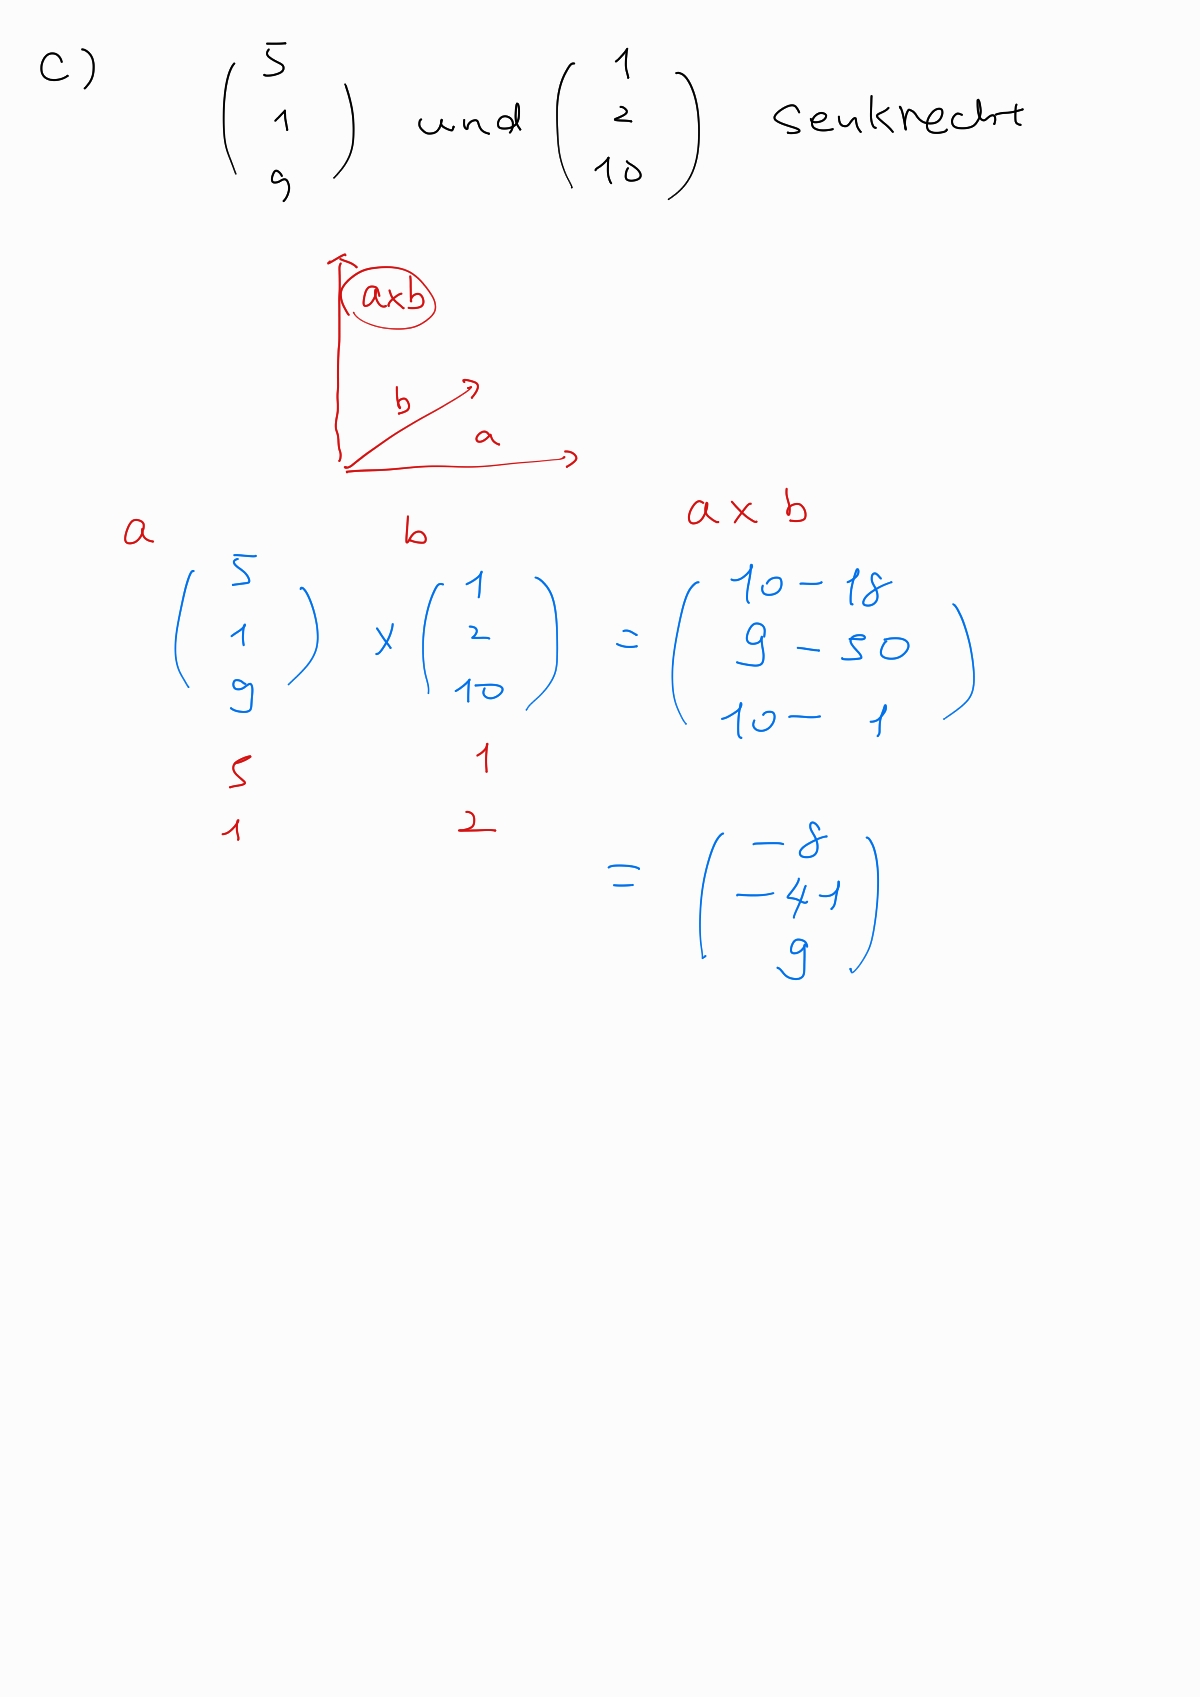 c) (5 1 9) und (1 2 10) senkrecht
axb
b
a
a b a x b
(5 1 9) x (1 2 10) = (10 - 18 9 - 50 10 - 1)
5 1
1 2
= (-8 -41 9)